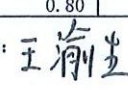 0.80
: 王渝生